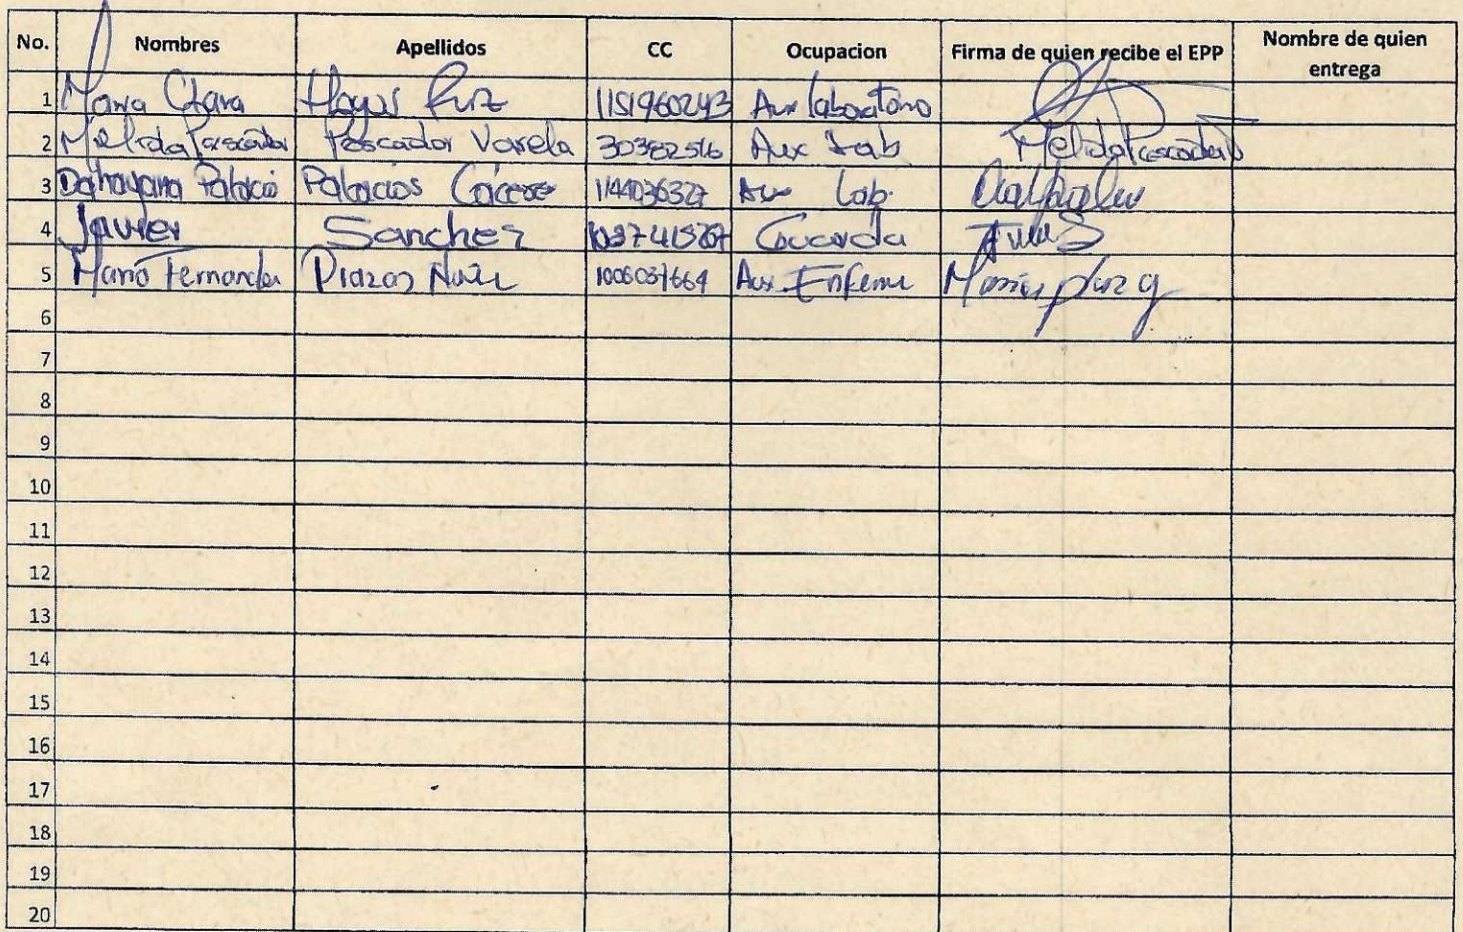 No. Nombres Apellidos CC Ocupacion Firma de quien recibe el EPP Nombre de quien entrega
1 Maria Clara Hoyos Ruiz 1151960243 Aux laboratorio
2 Melida Pescador Pescador Varela 30382516 Aux Lab Melida Pescador
3 Dahayana Palacio Palacios Cáceres 1144036327 Aux Lab.
4 Javier Sanchez Guarda
5 Maria Fernanda 1006037664 Aux Enferme
6
7
8
9
10
11
12
13
14
15
16
17
18
19
20